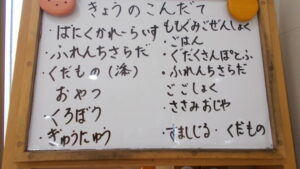 きょうのこんだて
・ばにくかれーらいす
・ふれんちさらだ
・くだもの(漆)
おやつ
くろぼう
・ぎゅうにゅう
ももぐみごぜんしょく
・ごはん
・ぐだくさんぽとふ
・ふれんちさらだ
ごごしょく
・ささみおじや
すましじる・くだもの